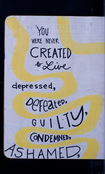 YOU
WERE NEVER
CREATED
to Live
depressed,
Defeated,
GUILTY,
CONDEMNED,
ASHAMED,